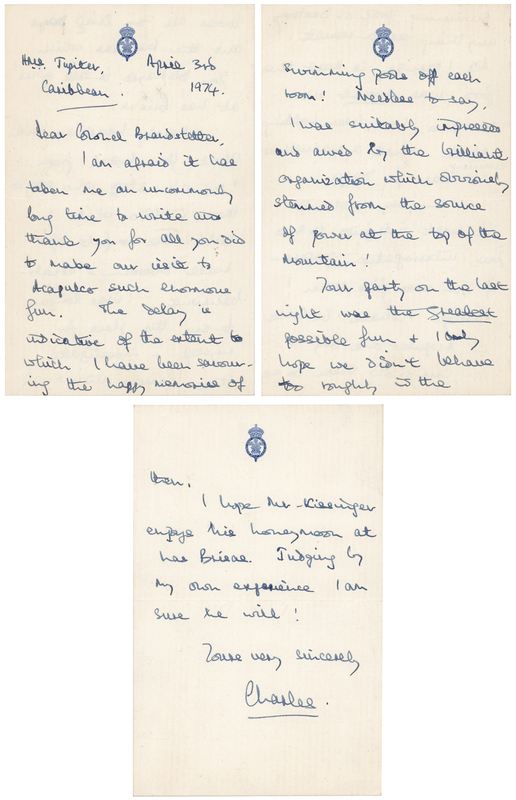 HMS Jupiter, April 3rd
Caribbean. 1974.
Dear Colonel Brandstetter,
I am afraid it has
taken me an uncommonly
long time to write and
thank you for all you did
to make our visit to
Acapulco such enormous
fun. The delay is
indicative of the extent to
which I have been savour-
ing the happy memories of
swimming pools off each
room! Needless to say,
I was suitably impressed
and awed by the brilliant
organization which obviously
stemmed from the source
of power at the top of the
mountain!
Your party on the last
night was the greatest
possible fun & I only
hope we didn't behave
too roughly in the
I hope Mr. Kissinger
enjoys his honeymoon at
Las Brisas. Judging by
my own experience I am
sure he will!
Yours very sincerely
Charles.